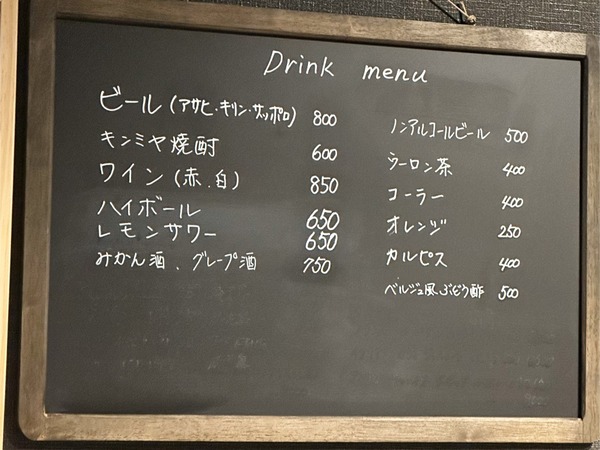 Drink menu
ビール(アサヒ・キリン・サッポロ) 800
キンミヤ焼酎 600
ワイン(赤.白) 850
ハイボール 650
レモンサワー 650
みかん酒、グレープ酒 750
ノンアルコールビール 500
ウーロン茶 400
コーラー 400
オレンジ 250
カルピス 400
ベルジュ風ぶどう酢 500